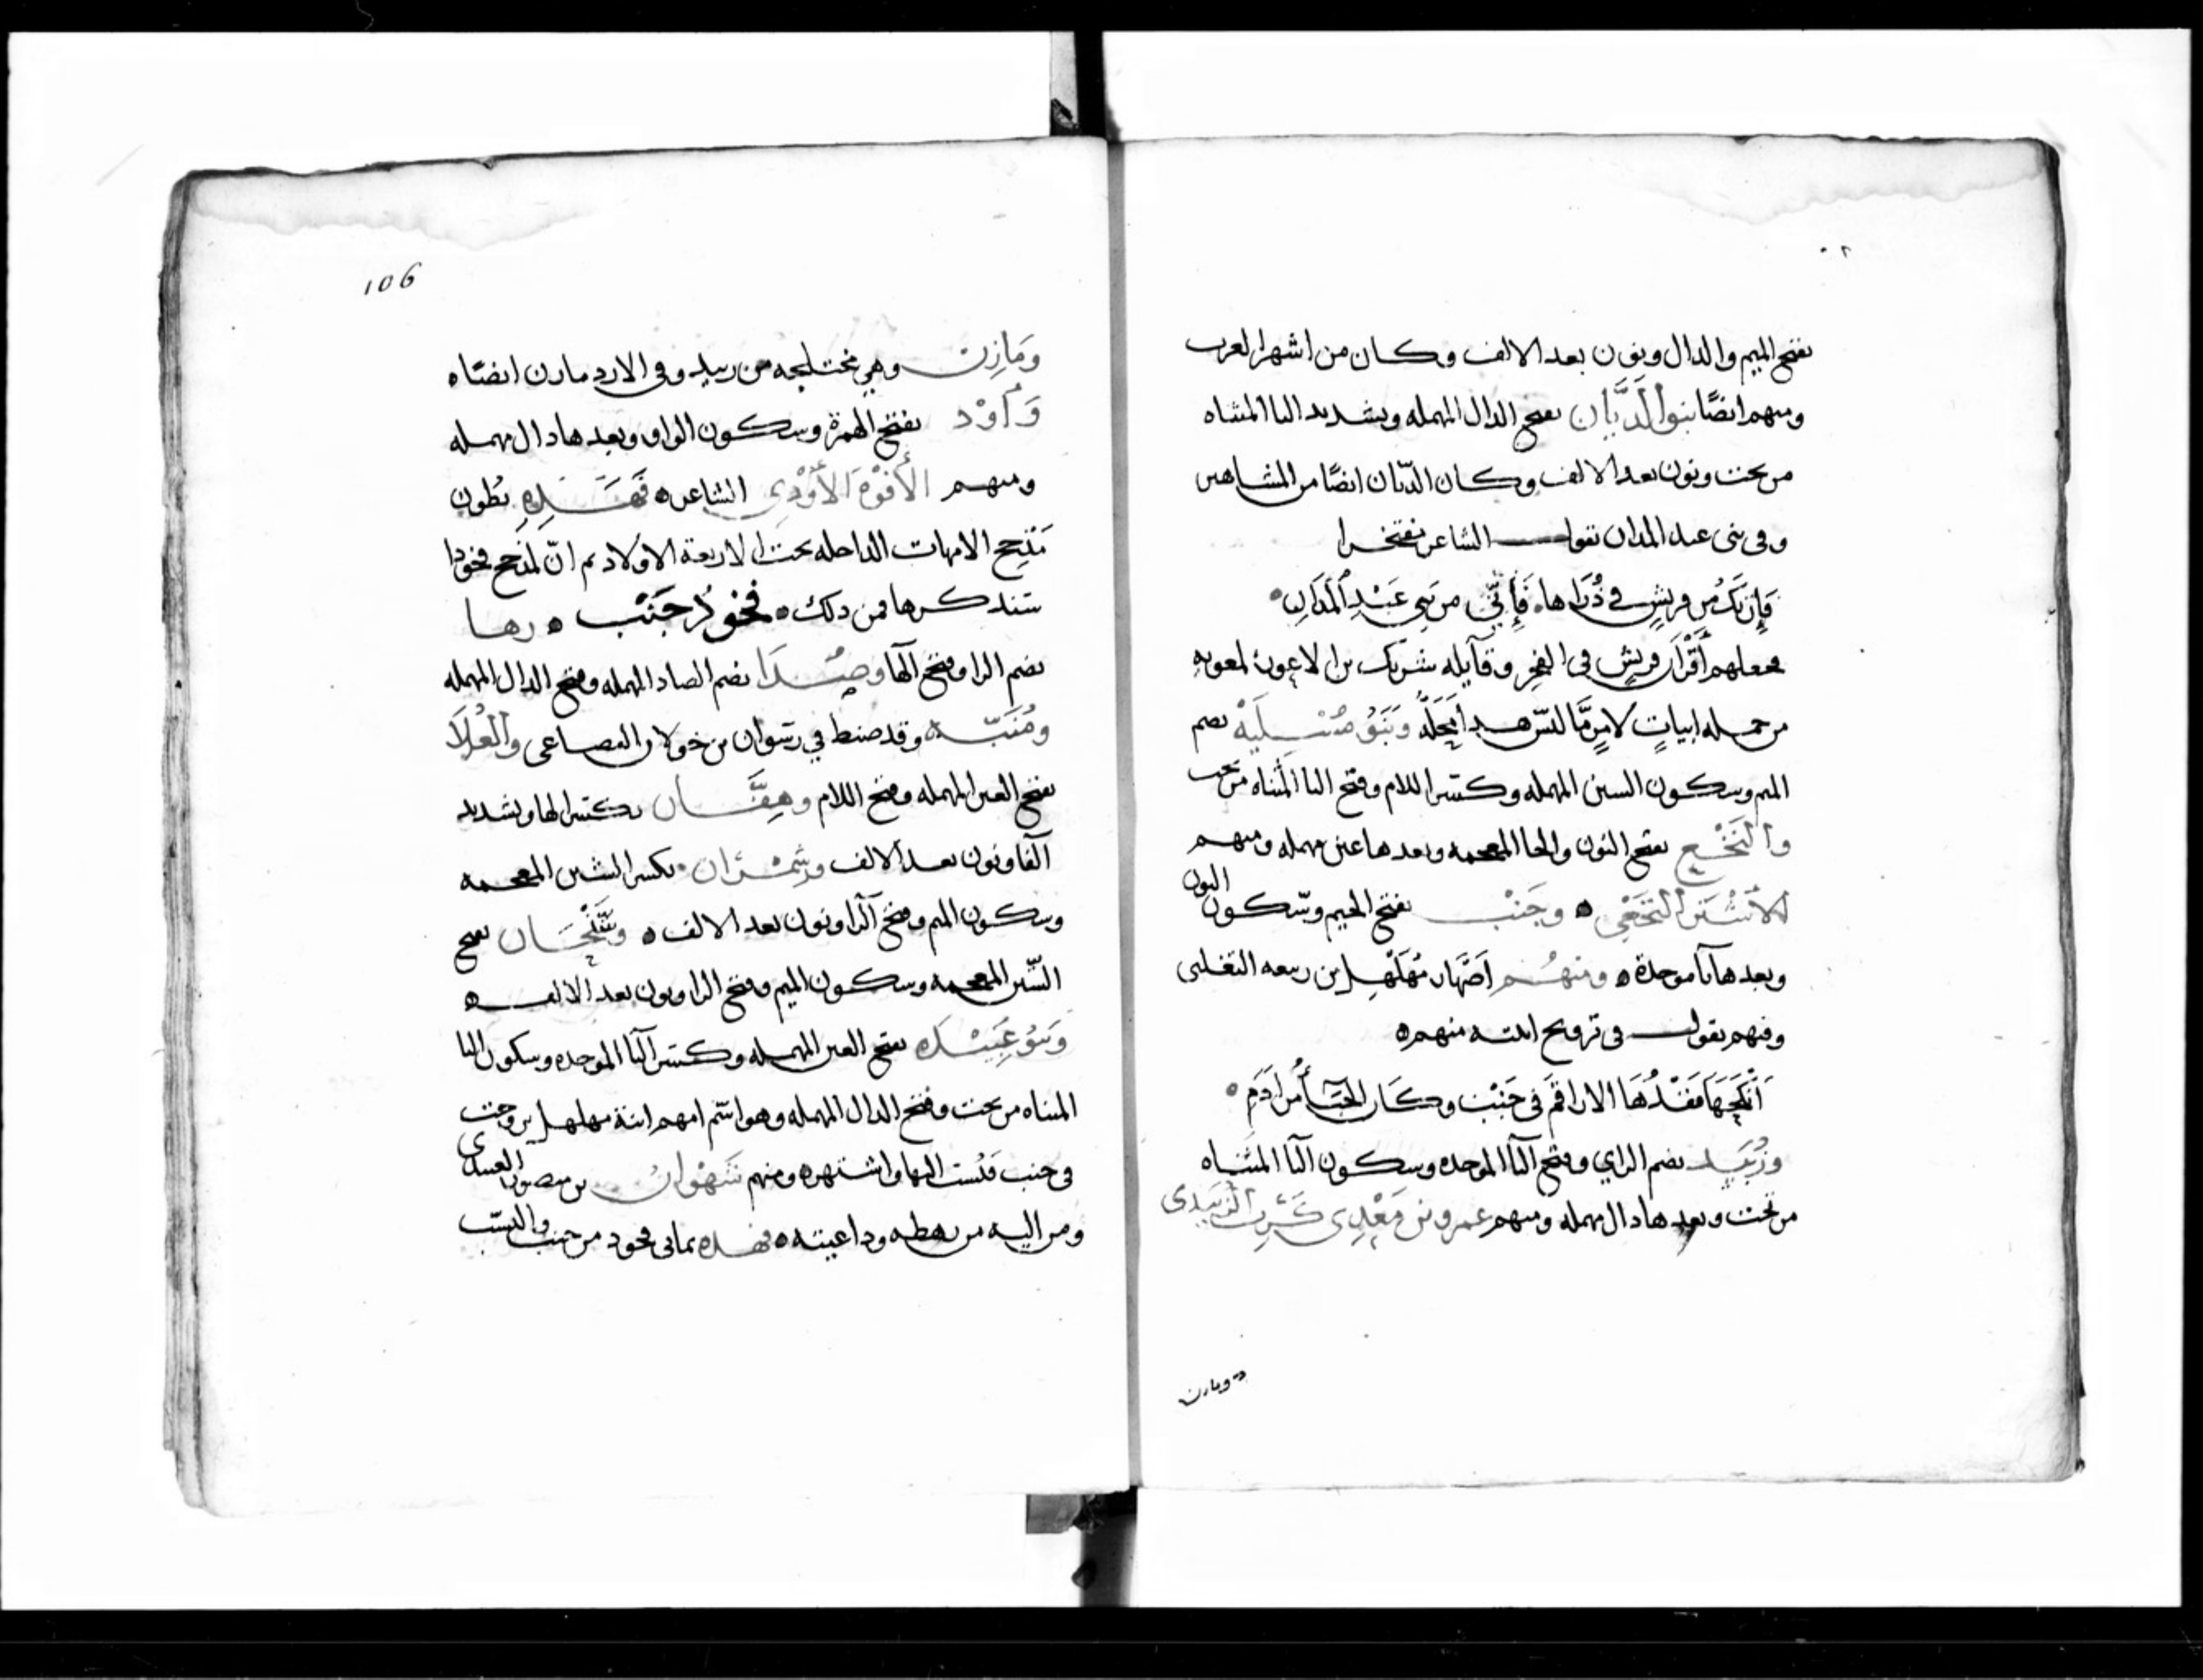 بفتح الميم والدال ونون بعد الالف وكان من اشهر العرب
ومنهم ايضًا بنو الدَّيَّان بفتح الدال المهمله وتشديد اليا المثناه
من تحت ونون بعد الالف وكان الديّان ايضًا من المشاهير
وفي بني عبد المدان يقول الشاعر مفتخرا
فَإِن تَكُ من قريشٍ في ذُرَاها فَإِنّي من بَني عَبْدِ المَدَانِ
فجعلهم أقْرَان قريش في الفخر وقايله شريك بن الاعور لمعويه
من جمله ابيات وبَنو مُسْلِيَة بضم
الميم وسكون السين المهمله وكسر اللام وفتح اليا المثناه من تحت
والنَّخَع بفتح النون والخا المعجمه وبعدها عين مهمله ومنهم
الاشتر النَّخَعي ٥ وجَنْب بفتح الجيم وسّكون النون
وبعدها باموحدة ٥ ومنهُم اَصْهَار مُهَلْهِل بن ربيعه التغلبي
وفيهم يقول في تزويج ابنته منهم ٥
أنكَحَهَا فَقْدُهَا الاراقمَ في جَنْبٍ وكَان الحِبَاُ من ادَمِ
وزُبَيد بضم الزاي وفتح البا الموحده وسكون اليا المثناه
من تحت وبعدها دال مهمله ومنهم عمرو بن مَعْدِي كَرِب الزبيدى
ومازن
106
ومَازِن وهي مختلجه من زبيد وفي الازد مازن ايضًا ٥
وَأَوْد بفتح الهمزة وسكون الواو وبعدها دال مهمله
ومنهم الأَفْوَه الأَوْدِي الشاعر ٥ فهَذِهِ بُطون
مَذْحِج الامهات الداخله تحت الاربعة الاولاد ثم انّ لمَذحج فخوذا
سنذكرها فمن ذلك ٥ فخوذ جَنْب ٥ رها
بضم الرا وفتح الها وصُدَا بضم الصاد المهمله وفتح الدال المهمله
ومُنَبّه وقد ضبط في رشوان من خولان القضاعى والعُلَا
بفتح العين المهمله وفتح اللام وهِفَّان بكسر الها وتشديد
الفا ونون بعد الالف وشِمْرَان بكسر الشين المعجمه
وسكون الميم وفتح الرا ونون بعد الالف ٥ وسَنْحَان بفتح
السّين المعجمه وسكون الميم وفتح الرا ونون بعد الالف ٥
وَبَنو عَبِيْدَه بفتح العين المهمله وكسر البا الموحده وسكون اليا
المثناه من تحت وفتح الدال المهمله وهو اسّم امهم ابنة مهلهل تزوجت
في جنب فنُسبت اليها واشتهره ومنهم شَهْوان بن منصور العبيدى
ومن اليه من رهطه وداعيته ٥ فهذه ثمانى فخوذ من جنب والنسب